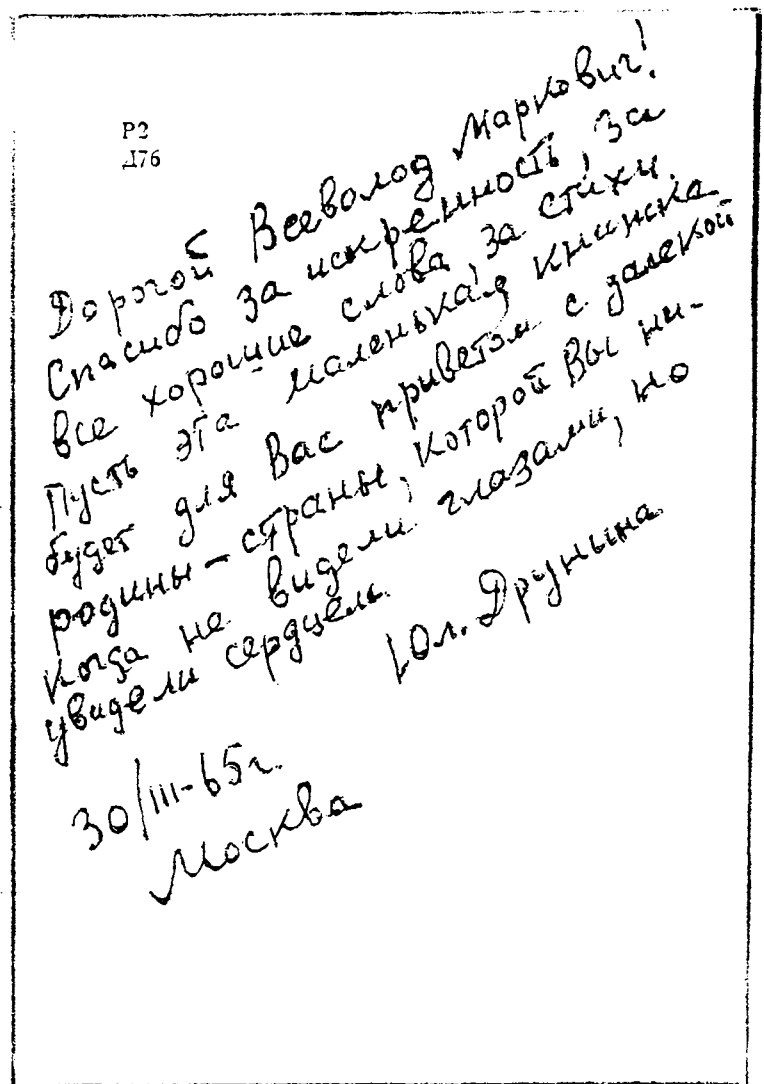 Р2
Д76
Дорогой Всеволод Маркович!
Спасибо за искренность, за
все хорошие слова, за стихи.
Пусть эта маленькая книжка
будет для Вас приветом с далекой
родины – страны, которой Вы ни-
когда не видели глазами, но
увидели сердцем.
Юл. Друнина
30/III-65г.
Москва